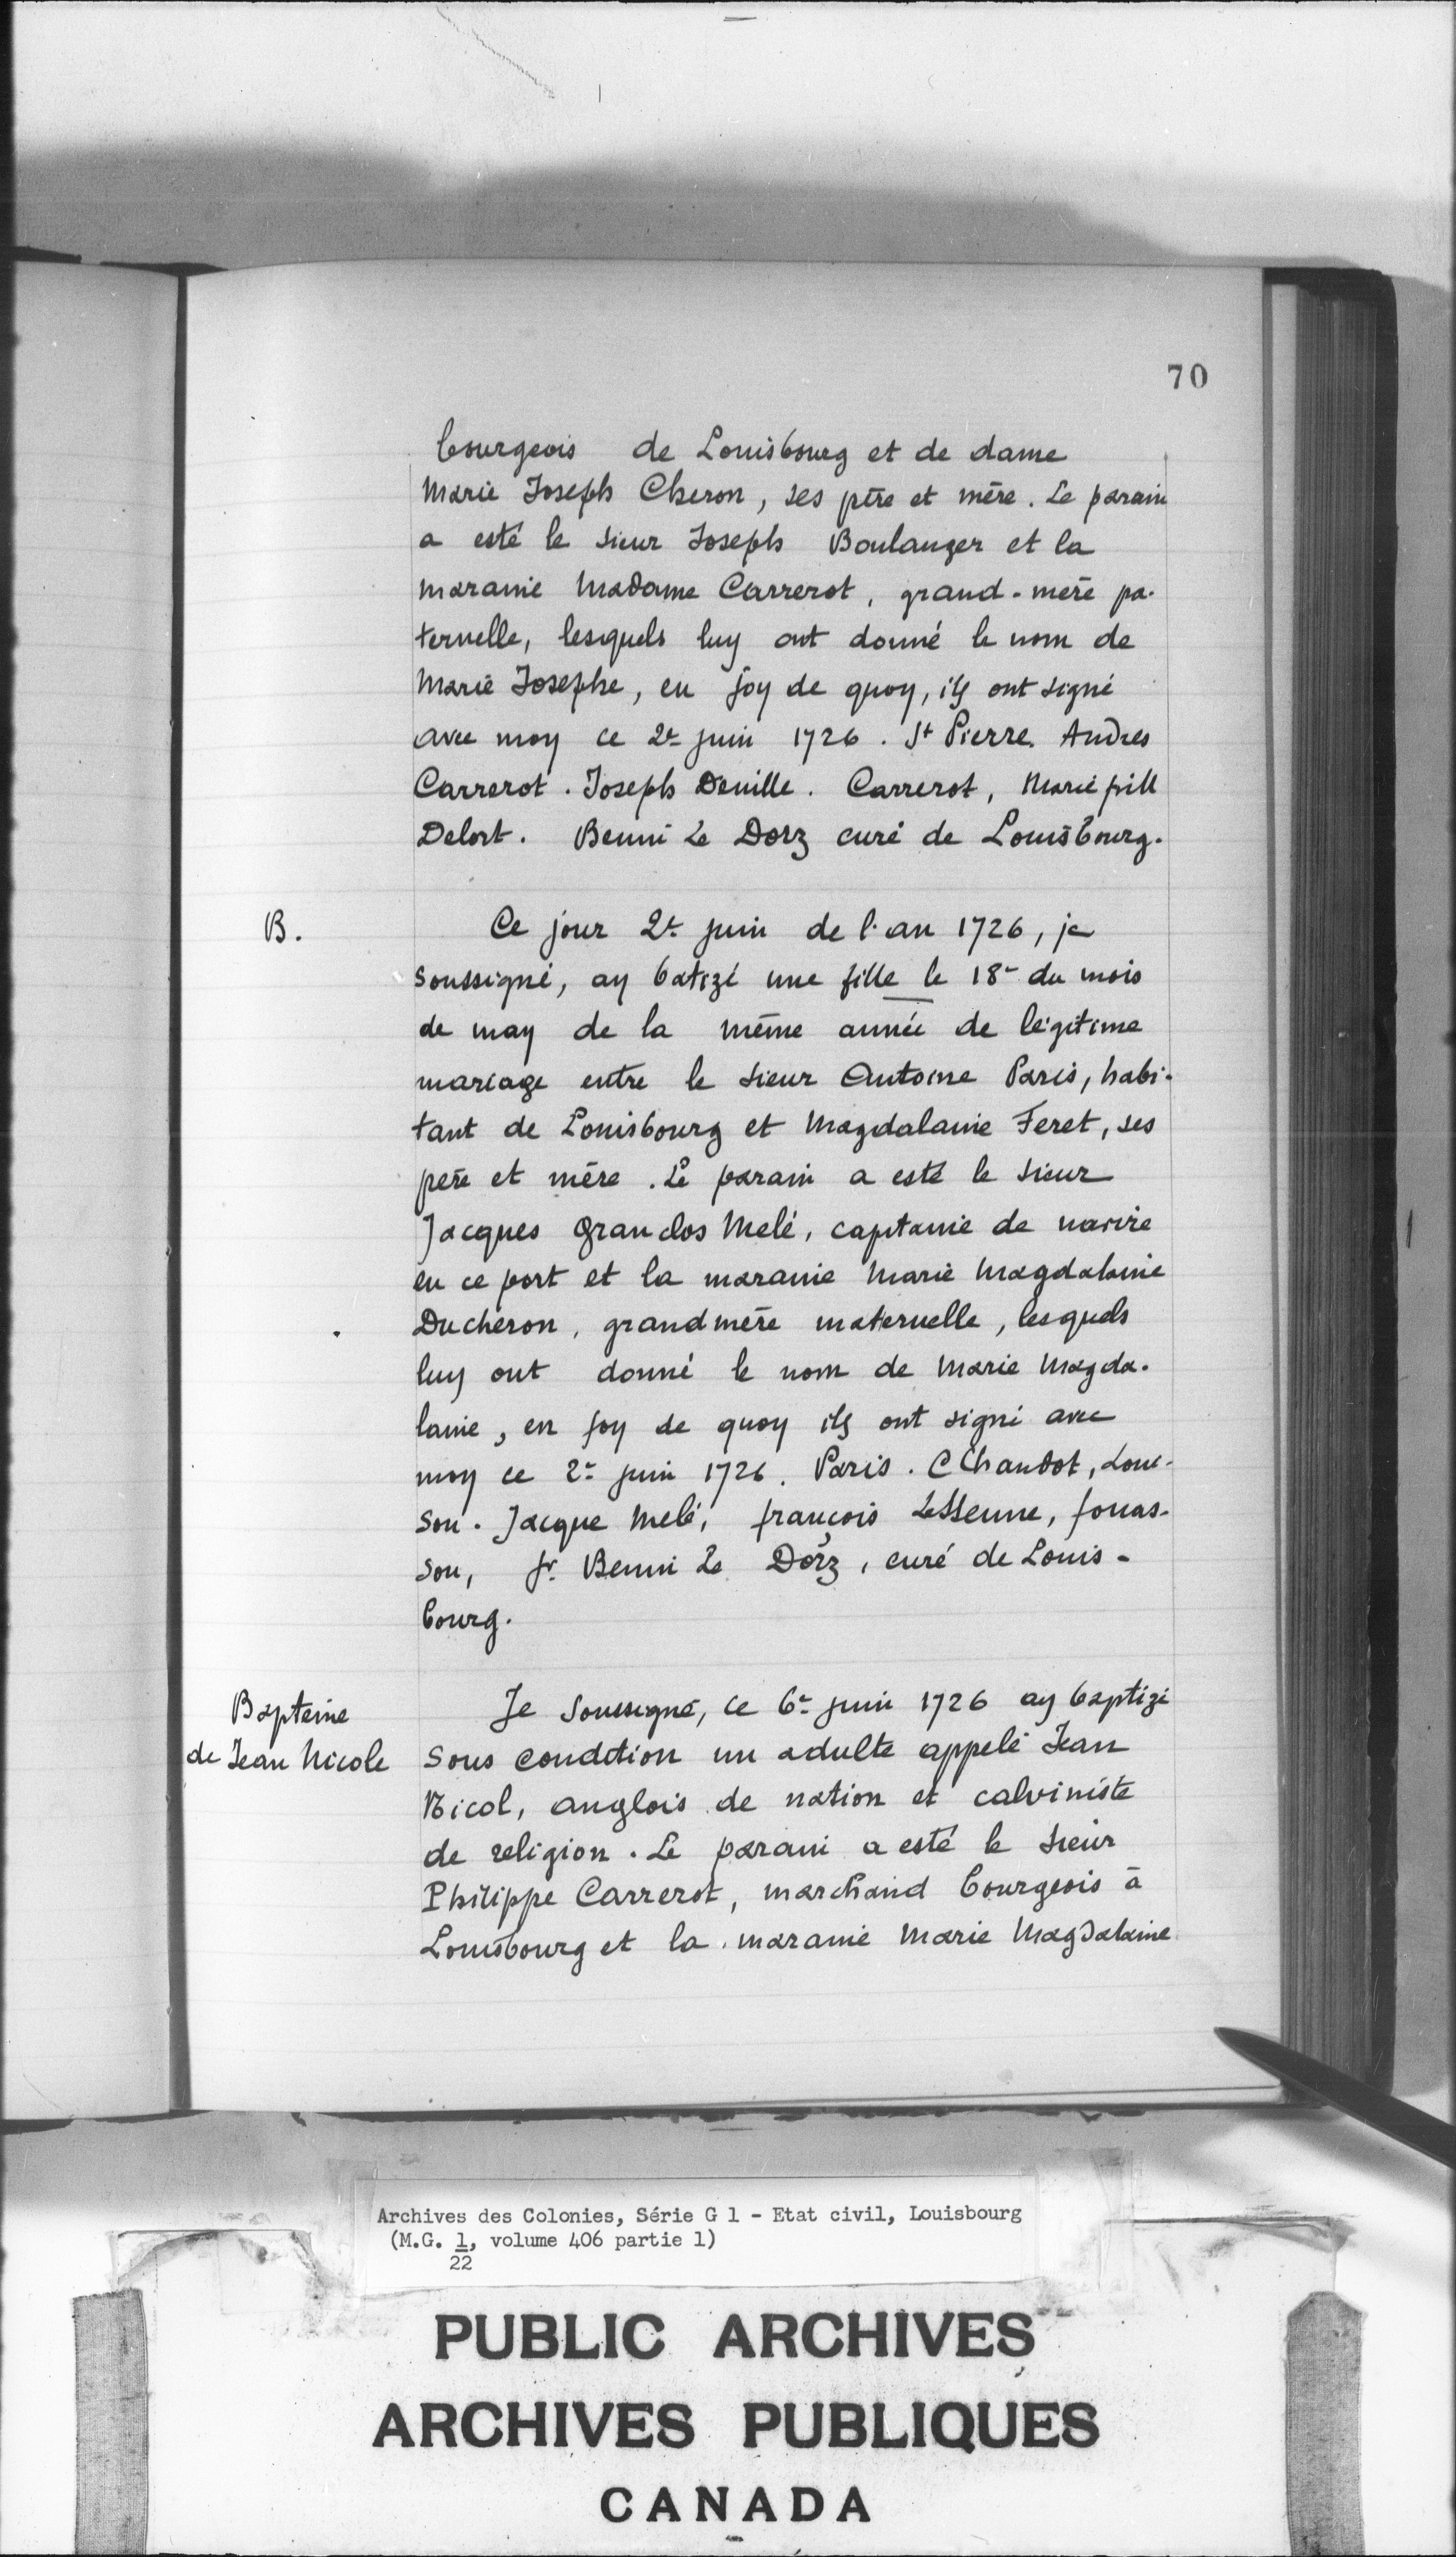 70
bourgeois de Louisbourg et de dame
Marie Joseph Cheron, ses père et mère. Le parain
a esté le sieur Joseph Boulanger et la
maraine Madame Carrerot, grand-mère pa-
ternelle, lesquels luy ont donné le nom de
Marie Josephe, en foy de quoy, ils ont signé
avec moy ce 2e juin 1726. St Pierre. Andres
Carrerot. Joseph Deville. Carrerot, Marie
Delort. Benni Le Dorz curé de Louisbourg.
B.
Ce jour 2e juin de l'an 1726, je
soussigné, ay batizé une fille le 18e du mois
de may de la même année de légitime
mariage entre le sieur Antoine Paris, habi-
tant de Louisbourg et Magdalaine Feret, ses
père et mère. Le parain a esté le sieur
Jacques Granclos Melé, capitaine de navire
en ce port et la maraine Marie Magdalaine
Ducheron, grandmère maternelle, lesquels
luy ont donné le nom de Marie Magda-
laine, en foy de quoy ils ont signé avec
moy ce 2e juin 1726. Paris. C Chandot,
son. Jacque Melé, françois LeSsenne, fouas-
son, fr. Benni Le Dorz, curé de Louis-
bourg.
Bapteme
de Jean Nicole
Je soussigné, ce 6e juin 1726 ay baptizé
sous condition un adulte appelé Jean
Nicol, anglois de nation et calviniste
de religion. Le parain a esté le sieur
Philippe Carrerot, marchand bourgeois à
Louisbourg et la maraine Marie Magdalaine
Archives des Colonies, Série G 1 - Etat civil, Louisbourg
(M.G. 1, volume 406 partie 1)
22
PUBLIC ARCHIVES
ARCHIVES PUBLIQUES
CANADA